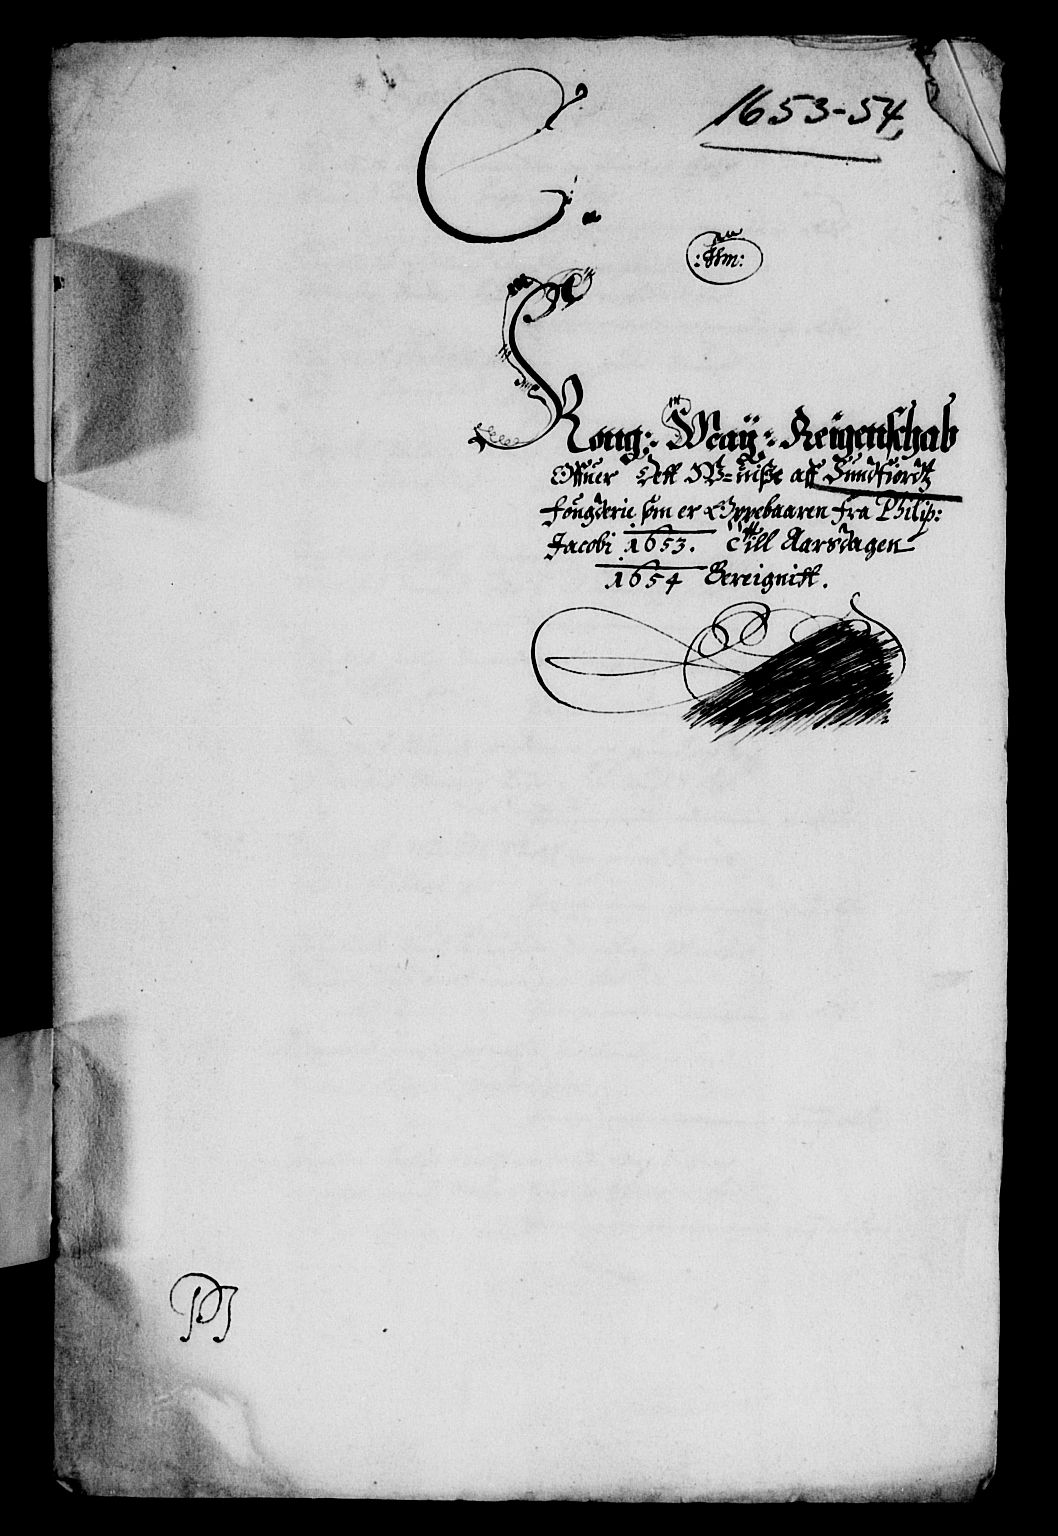 C.
1653-54,
Kong: May: Reigenschab
Offuer Aff W-uiße aff Sundfiordtz
fougderie som er Oppebaaren fra Philip:
Jacobi 1653. Till Aarsdagen
1654 Bereignitt.